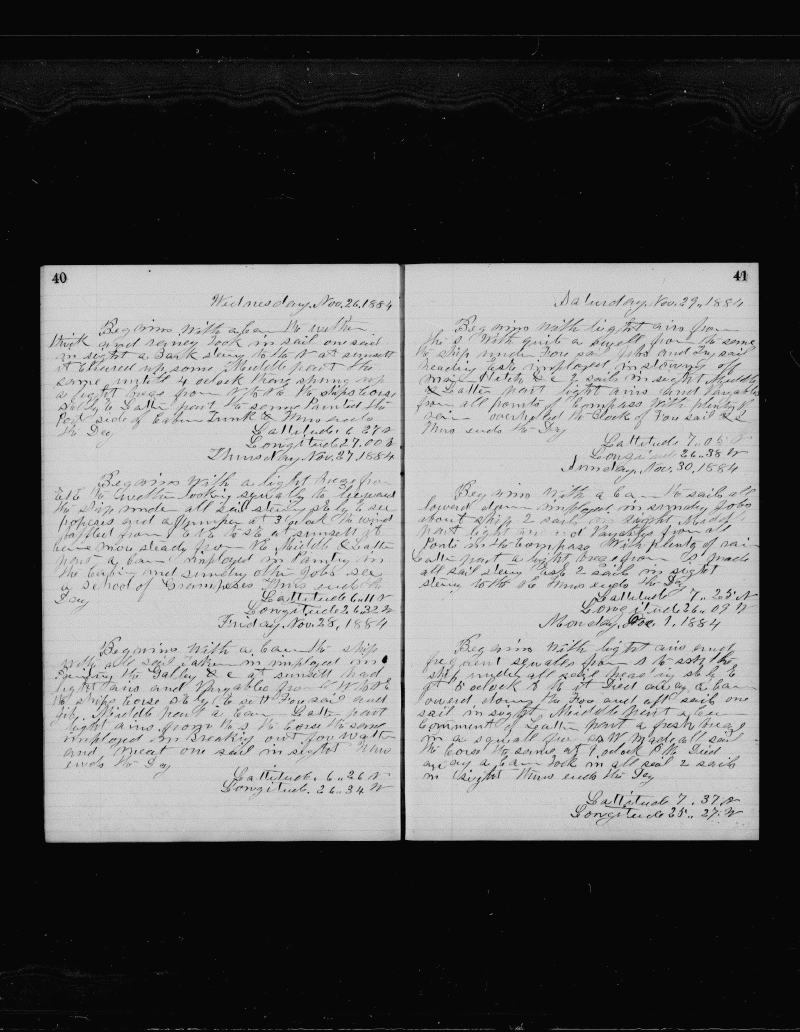 40
Wednesday, Nov. 26, 1884
Begins with a Cam the wether
thick and rainey took in sail one sail
in sight a Bark stering to the at sunsett
it Cleared up some Middle part the
same untill 4 oclock then sprung up
a light from the ships Corse
Latter part the same Painted the
Port side of Cabin Trunk & Thus ends
the Day
Lattitude. 6.. 27 N
Longitude 27.. 00 W
Thursday, Nov. 27, 1884
Begins with a light from
the wether looking squaly to leeward
the ship under all sail stering
and a at 3 oclock the wind
from at sunsett it
more steady from the Middle & Latter
part a Cam imployed in
the and sundry other Jobs
a school of Grampuses Thus ends the
Day
Lattitude 6.. 11 N
Longitude 26.. 32 W
Friday, Nov. 28, 1884
Begins with a Cam the ship
with all sail taken in imployed in
Painting the Galley & c at sunsett had
light airs and Varyables from
the ships Corse to sett Fore sail and
Jib. Middle part a Cam Latter part
light airs from the S the Corse the same
imployed in Breaking out for water
and meat one sail in sight Thus
ends the Day
Lattitude. 6.. 26 N
Longitude. 26.. 34 W
41
Saturday, Nov. 29, 1884
Begins with light airs from
the S with quite a swell from the same
the ship under Fore sail Jibs and Try sail
heading imployed in stowing off
main Hatch & c 2 sails in sight Middle
& Latter part light airs and Varyables
from all points of Compass with plenty of
rain overhaled the Clock of Fore sail & c
Thus ends the Day
Lattitude 7.. 05 N
Longitude 26.. 38 W
Sunday, Nov. 30, 1884
Begins with a Cam the sails all
lowered down imployed in sundry Jobs
about ship 2 sails in sight Middle
part light airs and Varyables from all
Points in the Compass with plenty of rain
Latter part a light from made
all sail stering 2 sails in sight
stering to the Thus ends the Day
Lattitude 7.. 25 N
Longitude 26.. 09 W
Monday, Dec. 1, 1884
Begins with light airs and
frequent squalls from S to SSW the
ship under all sail heading
at 5 oclock it Died away a Cam
lowered down the Fore and aft sails one
sail in sight Middle part a Cam
Comment of Latter part a fresh
in a squall from SSW made all sail
the Corse the same at 9 oclock Died
away a Cam took in all sail 2 sails
in sight Thus ends the Day
Lattitude 7.. 37 N
Longitude 25.. 27 W